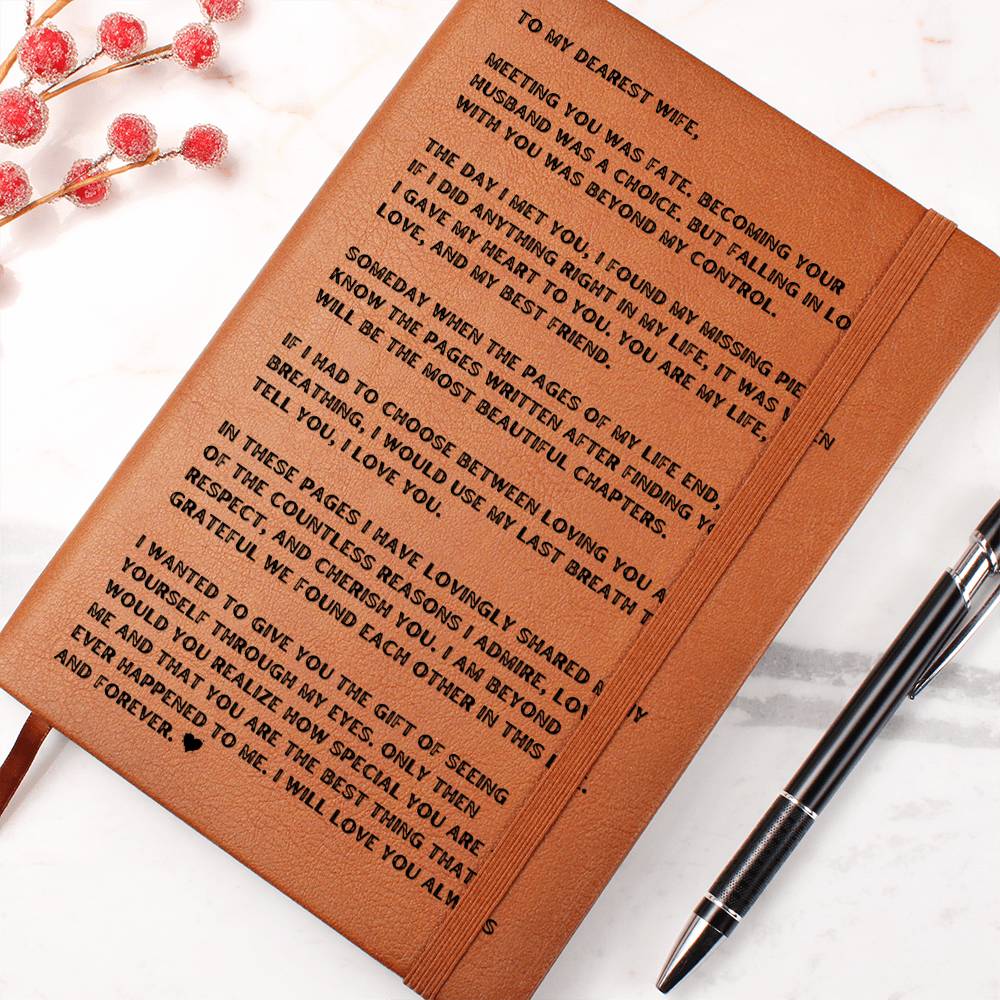 TO MY DEAREST WIFE,
MEETING YOU WAS FATE. BECOMING YOUR
HUSBAND WAS A CHOICE. BUT FALLING IN LO
WITH YOU WAS BEYOND MY CONTROL.
THE DAY I MET YOU, I FOUND MY MISSING PIE
IF I DID ANYTHING RIGHT IN MY LIFE, IT WAS WHEN
I GAVE MY HEART TO YOU. YOU ARE MY LIFE,
LOVE, AND MY BEST FRIEND.
SOMEDAY WHEN THE PAGES OF MY LIFE END,
KNOW THE PAGES WRITTEN AFTER FINDING YO
WILL BE THE MOST BEAUTIFUL CHAPTERS.
IF I HAD TO CHOOSE BETWEEN LOVING YOU A
BREATHING, I WOULD USE MY LAST BREATH T
TELL YOU, I LOVE YOU.
IN THESE PAGES I HAVE LOVINGLY SHARED MY
OF THE COUNTLESS REASONS I ADMIRE, LOV
RESPECT, AND CHERISH YOU. I AM BEYOND
GRATEFUL WE FOUND EACH OTHER IN THIS
I WANTED TO GIVE YOU THE GIFT OF SEEING
YOURSELF THROUGH MY EYES. ONLY THEN
WOULD YOU REALIZE HOW SPECIAL YOU ARE
ME AND THAT YOU ARE THE BEST THING THAT
EVER HAPPENED TO ME. I WILL LOVE YOU ALWAYS
AND FOREVER. ♥